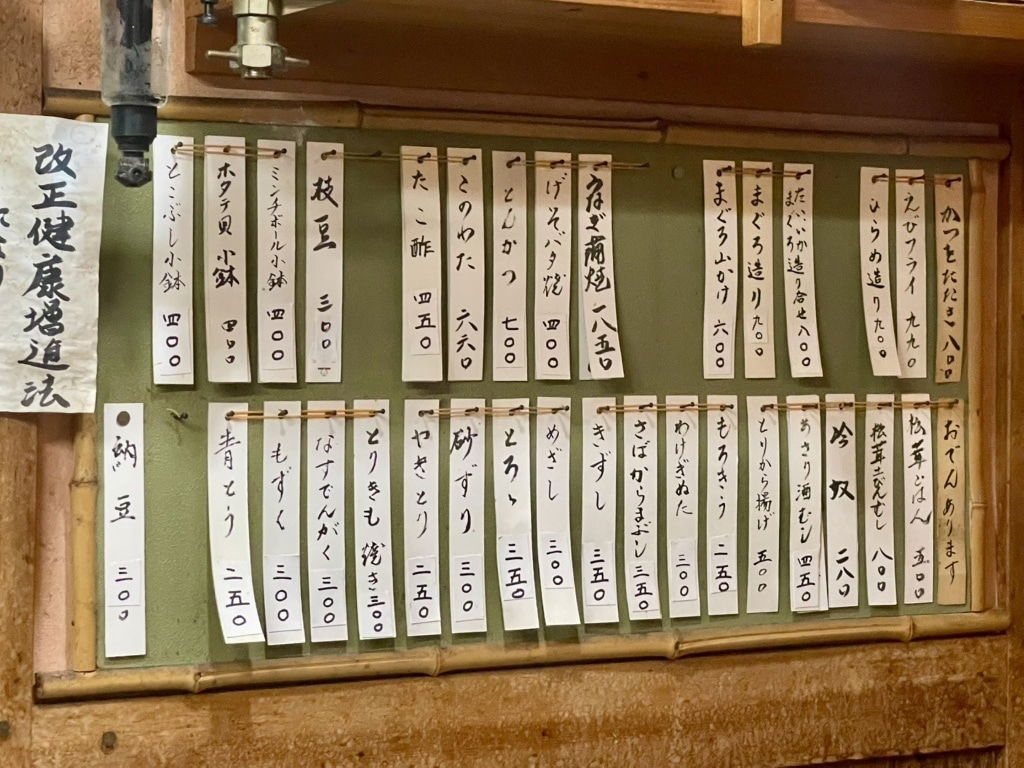 かつをたたき 八〇〇
えびフライ 九九〇
ひらめ造り 九〇〇
たい、いか造り合せ 八〇〇
まぐろ
まぐろ造り 九〇〇
まぐろ山かけ 六〇〇
うなぎ蒲焼 一八五〇
げそバタ焼 四〇〇
とんかつ 七〇〇
このわた 六六〇
たこ酢 四五〇
枝豆 三〇〇
ミンチボール小鉢 四〇〇
ホタテ貝小鉢 四〇〇
とこぶし小鉢 四〇〇
おでんあります
松茸ごはん 五〇〇
松茸土びんむし 八〇〇
冷奴 二八〇
あさり酒むし 四五〇
とりから揚げ 五〇〇
もろきう 二五〇
わけぎぬた 三〇〇
さばからまぶし 三五〇
きずし 三五〇
めざし 三〇〇
とろゝ 三五〇
砂ずり 三〇〇
やきとり 二五〇
とりきも焼き 三〇〇
なすでんがく 三〇〇
もずく 三〇〇
青とう 二五〇
納豆 三〇〇
改正健康増進法